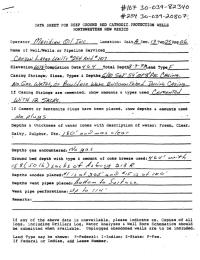 #107 30-039-82340
#254 30-039-20807
DATA SHEET FOR DEEP GROUND BED CATHODIC PROTECTION WELLS
NORTHWESTERN NEW MEXICO
Operator Meridian Oil Inc. Location: Unit A Sec. Twp 25 Rng 06
Name of Well/Wells or Pipeline Serviced
Canyon Largo Units #254 And #107
Elevation Completion Date Total Depth Land Type F
Casing Strings, Sizes, Types & Depths
Casing
If Casing Strings are cemented, show amounts & types used Cemented
WITH 12 SACKS.
If Cement or Bentonite Plugs have been placed, show depths & amounts used
No plugs
Depths & thickness of water zones with description of water: Fresh, Clear,
Salty, Sulphur, Etc. 180' and was clear
Depths gas encountered: No gas
Ground bed depth with type & amount of coke breeze used: 460' with
Depths anodes placed:
Depths vent pipes placed: Bottom to Surface
Vent pipe perforations: Up to 110'
Remarks:
If any of the above data is unavailable, please indicate so. Copies of all
logs, including Drillers Log, Water Analyses & Well Bore Schematics should
be submitted when available. Unplugged abandoned wells are to be included.
Land Type may be shown: F-Federal; I-Indian; S-State; P-Fee.
If Federal or Indian, add Lease Number.